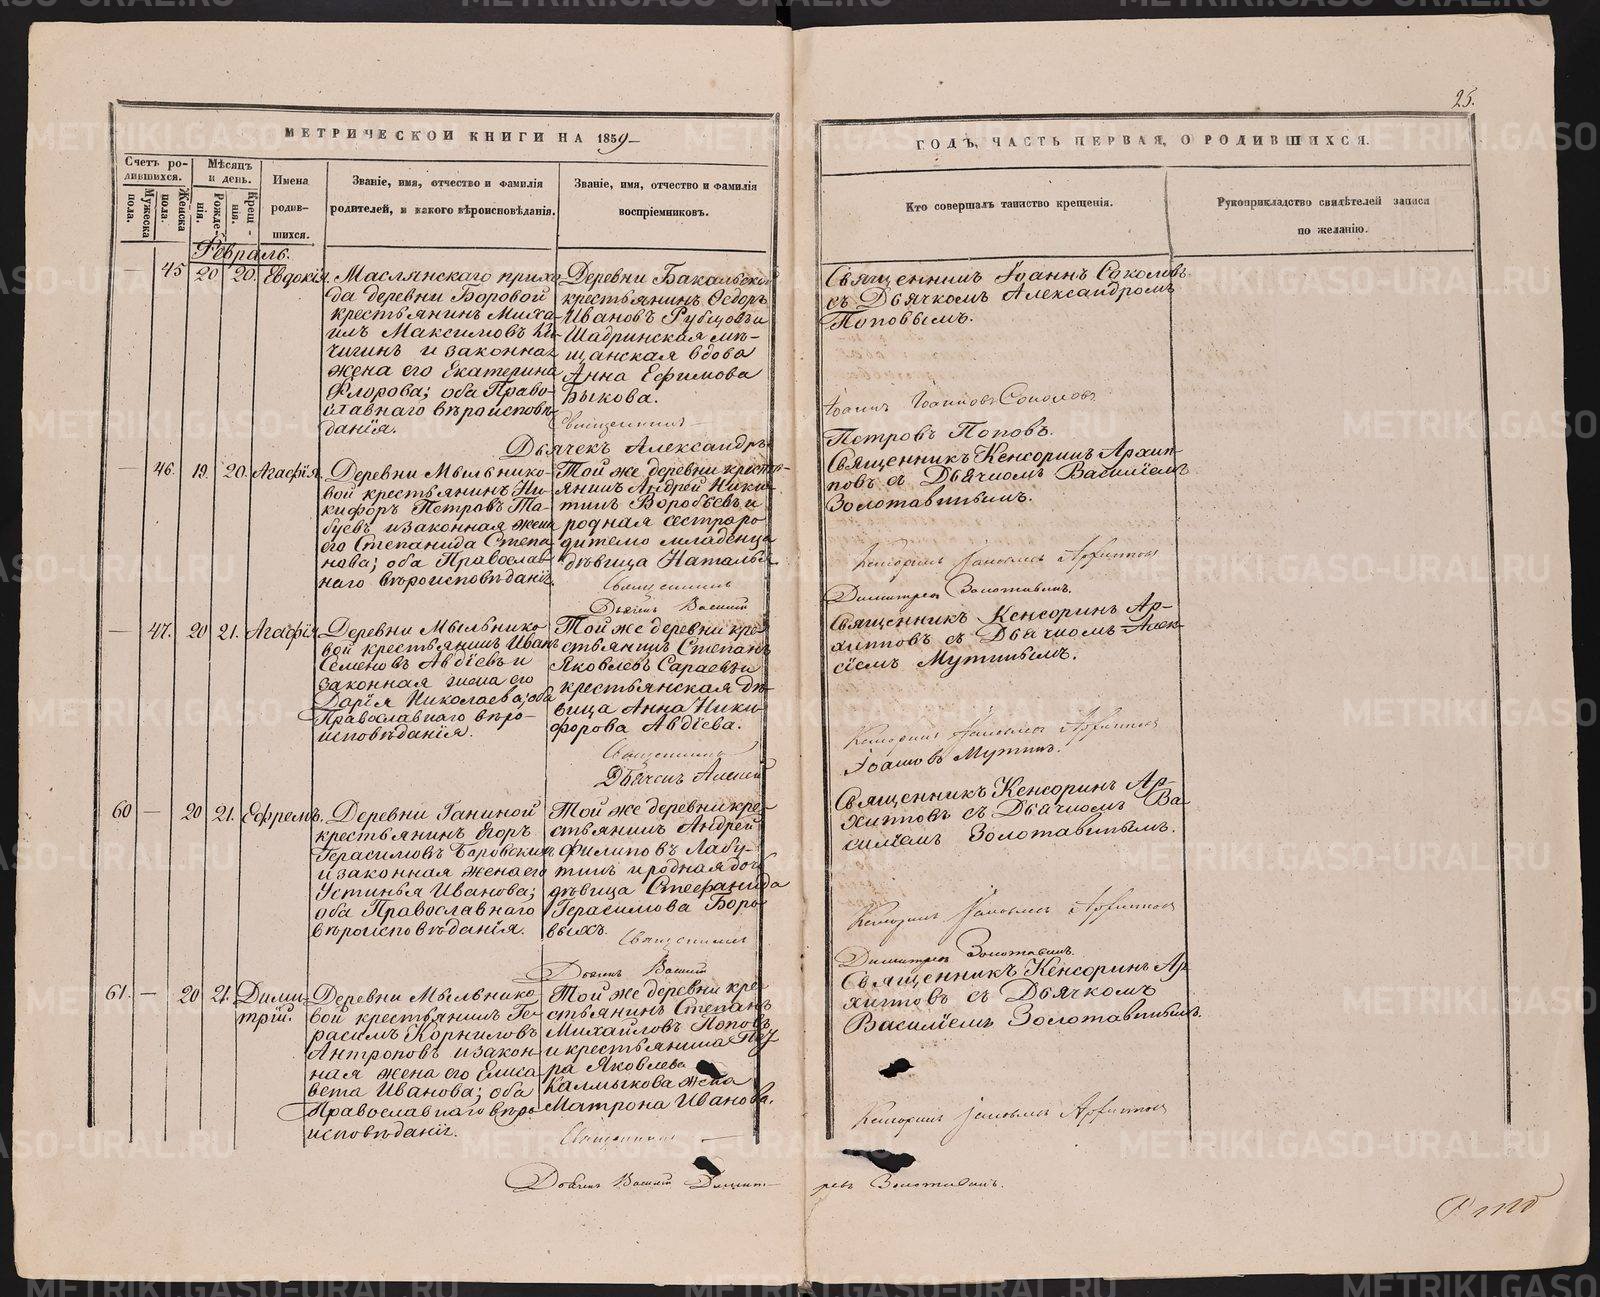 25.
МЕТРИЧЕСКОЙ КНИГИ НА 1859
ГОДЪ, ЧАСТЬ ПЕРВАЯ, О РОДИВШИХСЯ.
Счетъ ро-
дившихся.
Мужеска
пола.
Женска
пола.
Мѣсяцъ
и день.
Рожде-
нія.
Крещ-
нія.
Имена
родив-
шихся.
Званіе, имя, отчество и фамилія
родителей, и какого вѣроисповѣданія.
Званіе, имя, отчество и фамилія
воспріемниковъ.
Кто совершалъ таинство крещенія.
Рукоприкладство свидѣтелей записи
по желанію.
Февраль.
— 45 20 20. Евдокія.
Маслянскаго прихо
да деревни Боровой
крестьянинъ Миха-
илъ Максимовъ Ки-
чигинъ и законная
жена его Екатерина
Флорова; оба Право-
славнаго вѣроисповѣ-
данія.
Деревни Бакальской
крестьянинъ Ѳедоръ
Ивановъ Рубцовъ и
Шадринская мѣ-
щанская вдова
Анна Ефимова
Быкова.
Священникъ Іоаннъ Соколовъ
съ Дьячкомъ Александромъ
Поповымъ.
Священникъ
Іоаннъ Іоанновъ Соколовъ
Дьячекъ Александръ
Петровъ Поповъ.
— 46. 19. 20. Агафія.
Деревни Мыльнико-
вой крестьянинъ Ни-
кифоръ Петровъ Та-
буевъ и законная жена
его Степанида Степа
нова; оба Православ-
наго вѣроисповѣданія.
Той же деревни кресть-
янинъ Андрей Ники-
тинъ Воробьевъ и
родная сестра ро
дителю младенца
дѣвица Наталья
Священникъ Кенсоринъ Архип-
повъ съ Дьячкомъ Василіемъ
Золотавинымъ.
Священникъ
Кенсоринъ Архиповъ
Дьячекъ Василій
Димитріевъ Золотавинъ.
— 47. 20 21. Агафія.
Деревни Мыльнико
вой крестьянинъ Иванъ
Семеновъ Авдіевъ и
законная жена его
Дарія Николаева; оба
Православнаго вѣро-
исповѣданія.
Той же деревни кре-
стьянинъ Степанъ
Яковлевъ Сараевъ и
крестьянская дѣ-
вица Анна Ники-
форова Авдіева.
Священникъ Кенсоринъ Ар-
хипповъ съ Дьячкомъ Алек-
сіемъ Мутинымъ.
Священникъ
Кенсоринъ Архиповъ
Дьячекъ Алексій
Іоанновъ Мутинъ.
60 — 20 21. Ефремъ.
Деревни Ганиной
крестьянинъ Егоръ
Герасимовъ Боровскихъ
и законная жена его
Устинья Иванова;
оба Православнаго
вѣроисповѣданія.
Той же деревни кре-
стьянинъ Андрей
Филиповъ Лабу-
тинъ и родная дочь
дѣвица Стефанида
Герасимова Боро
выхъ.
Священникъ Кенсоринъ Ар-
хипповъ съ Дьячкомъ Ва
силіемъ Золотавинымъ.
Священникъ
Кенсоринъ Архиповъ
Дьячекъ Василій
Димитріевъ Золотавинъ.
61. — 20 21. Дими-
трій.
Деревни Мыльнико
вой крестьянинъ Ге-
расимъ Корниловъ
Антроповъ и закон-
ная жена его Елиса
вета Иванова; оба
Православнаго вѣро
исповѣданія.
Той же деревни кре-
стьянинъ Степанъ
Михайловъ Поповъ
и крестьянина Пет
ра Яковлева
Калмыкова жена
Матрона Иванова.
Священникъ Кенсоринъ Ар-
хипповъ съ Дьячкомъ
Василіемъ Золотавинымъ.
Священникъ
Кенсоринъ Архиповъ
Дьячекъ Василій Димит-
ріевъ Золотавинъ.
METRIKI.GASO-URAL.RU